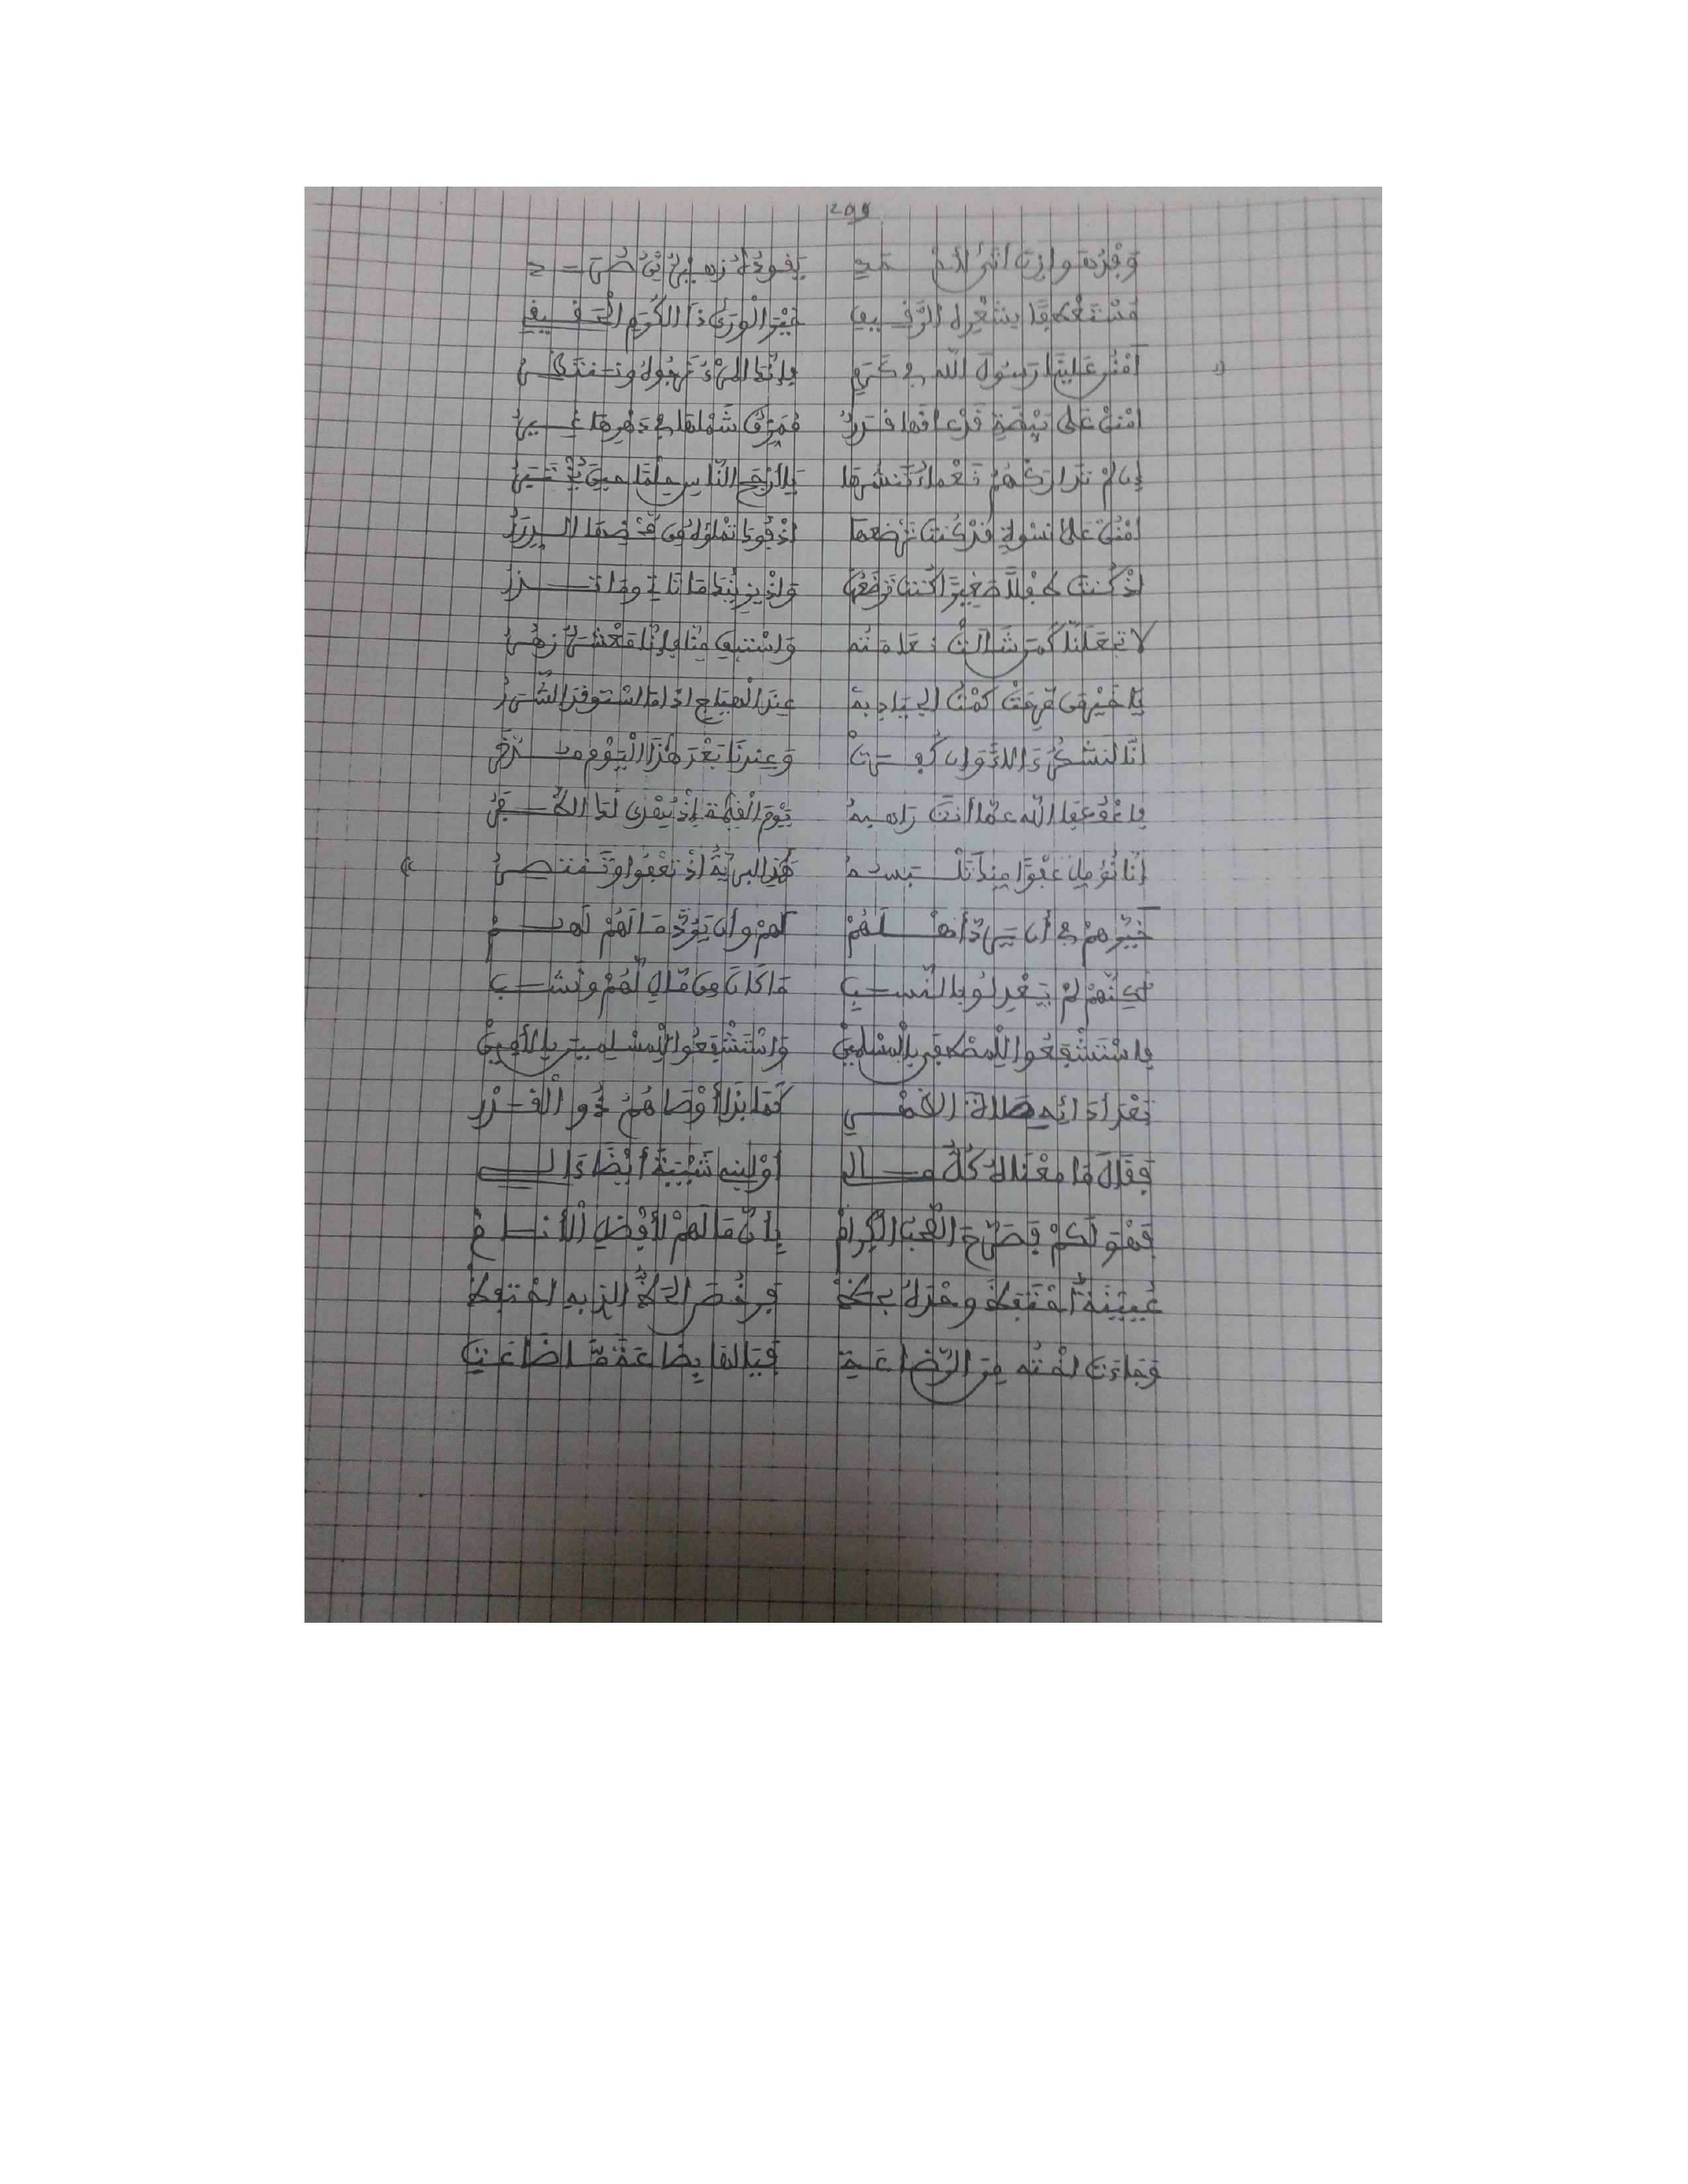 209
وَفْدُ هَوَازِنَ أَتَى لِأَحْمَدِ يَقُودُهُ زُهَيْرُ بْنُ صُرَدِ
مُسْتَعْطِفًا بِشِعْرِهِ الرَّقِيقِ خَيْرَ الْوَرَى ذَا الْكَرَمِ الْحَقِيقِ
« اُمْنُنْ عَلَيْنَا رَسُولَ اللَّهِ فِي كَرَمٍ فَإِنَّكَ الْمَرْءُ نَرْجُوهُ وَنَنْتَظِرُ
امْنُنْ عَلَى بَيْضَةٍ قَدْ عَاقَهَا قَدَرٌ مُمَزَّقٌ شَمْلُهَا فِي دَهْرِهَا غِيَرُ
إِن لَمْ تَدَارَكْهُمُ نَعْمَاءُ تَنْشُرُهَا يَا أَرْجَحَ النَّاسِ حِلْمًا حِينَ يُخْتَبَرُ
امْنُنْ عَلَى نِسْوَةٍ قَدْ كُنْتَ تَرْضَعُهَا إِذْ فُوكَ تَمْلَؤُهُ مِنْ مَحْضِهَا الدِّرَرُ
إِذْ كُنْتَ طِفْلًا صَغِيرًا كُنْتَ تَرْضَعُهَا وَإِذْ يَزِينُكَ مَا تَاتِي وَمَا تَذَرُ
لَا تَجْعَلَنَّا كَمَنْ شَالَتْ نَعَامَتُهُ وَاسْتَبْقِ مِنَّا فَإِنَّا مَعْشَرٌ زُهُرُ
يَا خَيْرَ مَنْ مَرِحَتْ كُمْتُ الْجِيَادِ بِهِ عِنْدَ الْهِيَاجِ إِذَا مَا اسْتَوْقَدَ الشَّرَرُ
إِنَّا لَنَشْكُرُ ءَالَاءً وَإِن كُفِرَتْ وَعِنْدَنَا بَعْدَ هَذَا الْيَوْمِ مُدَّخَرُ
فَاعْفُ عَفَا اللَّهُ عَمَّا أَنْتَ رَاهِبُهُ يَوْمَ الْقِيَامَةِ إِذْ يُهْدَى لَكَ الظَّفَرُ
إِنَّا نُؤَمِّلُ عَفْوًا مِنْكَ تَلْبَسُهُ هَذِي الْبَرِيَّةُ إِذْ تَعْفُو وَتَنْتَصِرُ »
خَيَّرَهُمْ فِي أَن يَرُدَّ أَهْلَهُمْ لَهُمْ وَأَن يَرُدَّ مَا لَهُمْ لَهُمْ
لَكِنَّهُمْ لَمْ يَعْدِلُوا بِالنَّسَبِ مَا كَانَ مِنْ مَالٍ لَهُمْ وَنَشَبِ
فَاسْتَشْفَعُوا لِلْمُصْطَفَى بِالْمُسْلِمِينْ وَاسْتَشْفَعُوا لِلْمُسْلِمِينَ بِالْأَمِينْ
بَعْدَ أَدَائِهِ صَلَاةَ الْخَمْسِ كَمَا بِذَا أَوْصَاهُمُ ذُو الْقَدْرِ
فَقَالَ مَا مَعْنَاهُ كُلُّ مَالِ أَوْلِبَنِي شَيْبَةَ أَيْضًا ءَالِ
فَهْوَ لَكُمْ فَصَرَّحَ الصَّحْبُ الْكِرَامْ بِأَنَّ مَا لَهُمْ لِأَفْضَلِ الْأَنَامْ
عُيَيْنَةٌ
وَجَاءَتْ اخْتُهُ مِنَ الرَّضَاعَةِ فَيَا لَهَا بِضَاعَةً